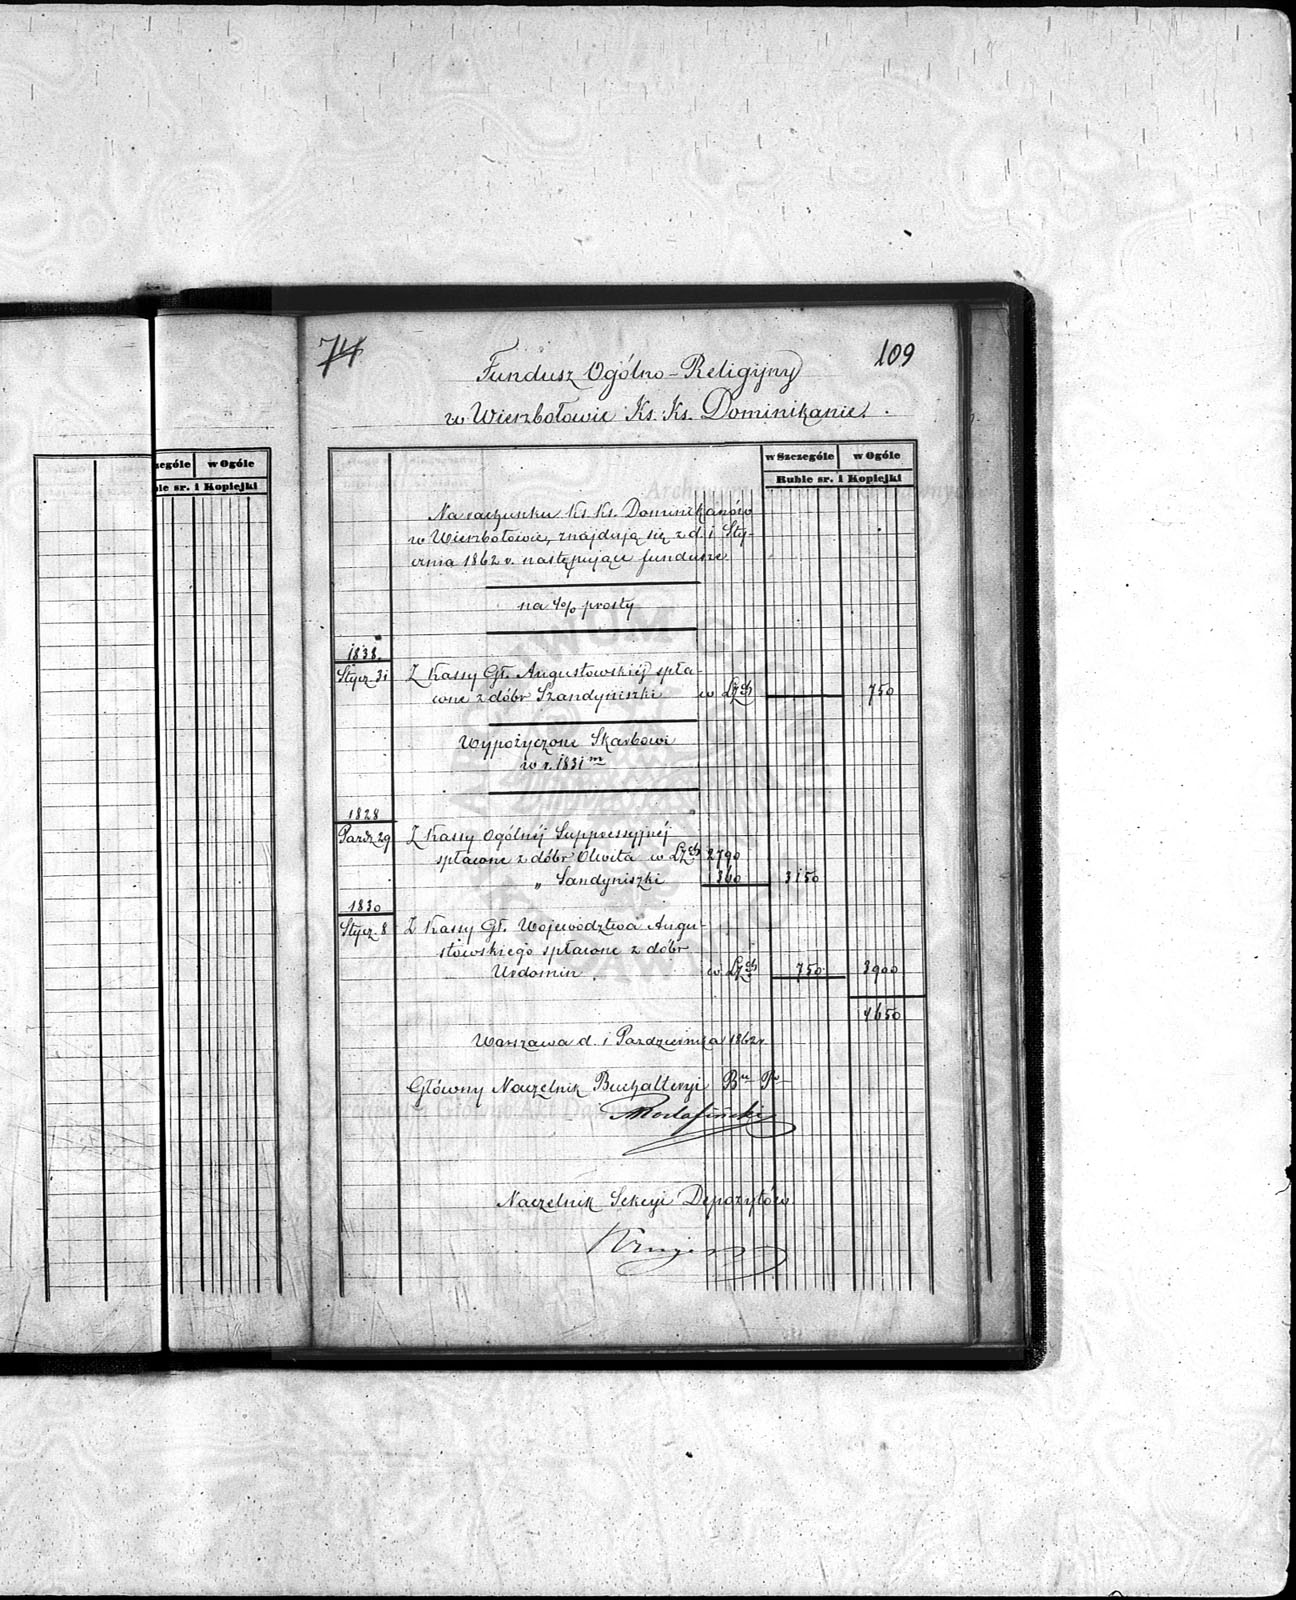 74
109
Fundusz Ogólno-Religijny
w Wierzbołowie Ks. Ks. Dominikanie.
zególe w Ogóle
ble sr. i Kopiejki
w Szczególe w Ogóle
Ruble sr. i Kopiejki
Na rachunku Ks Ks. Dominikanów
w Wierzbołowie, znajdują się z d. 1 Sty-
cznia 1862 r. następujące fundusze
na 4% prosty
1838.
Stycz. 31 Z Kassy Gł. Augustowskiéj spła-
cone z dóbr Szandyniszki w L[ch] 750
Wypożyczone Skarbowi
w r. 1831 m
1828
Paźdz 29 Z Kassy Ogólnéj Suppressyjnéj
spłacone z dóbr Olwita w 2790
„ Sandyniszki 360 3150
1830
Stycz. 8 Z Kassy Gł. Województwa Augu-
stowskiego spłacone z dóbr
Urdomin w 750 3900
4650
Warszawa d. 1 Października 1862 r.
Główny Naczelnik Buchalteryi
Naczelnik Sekcyi Depozytów